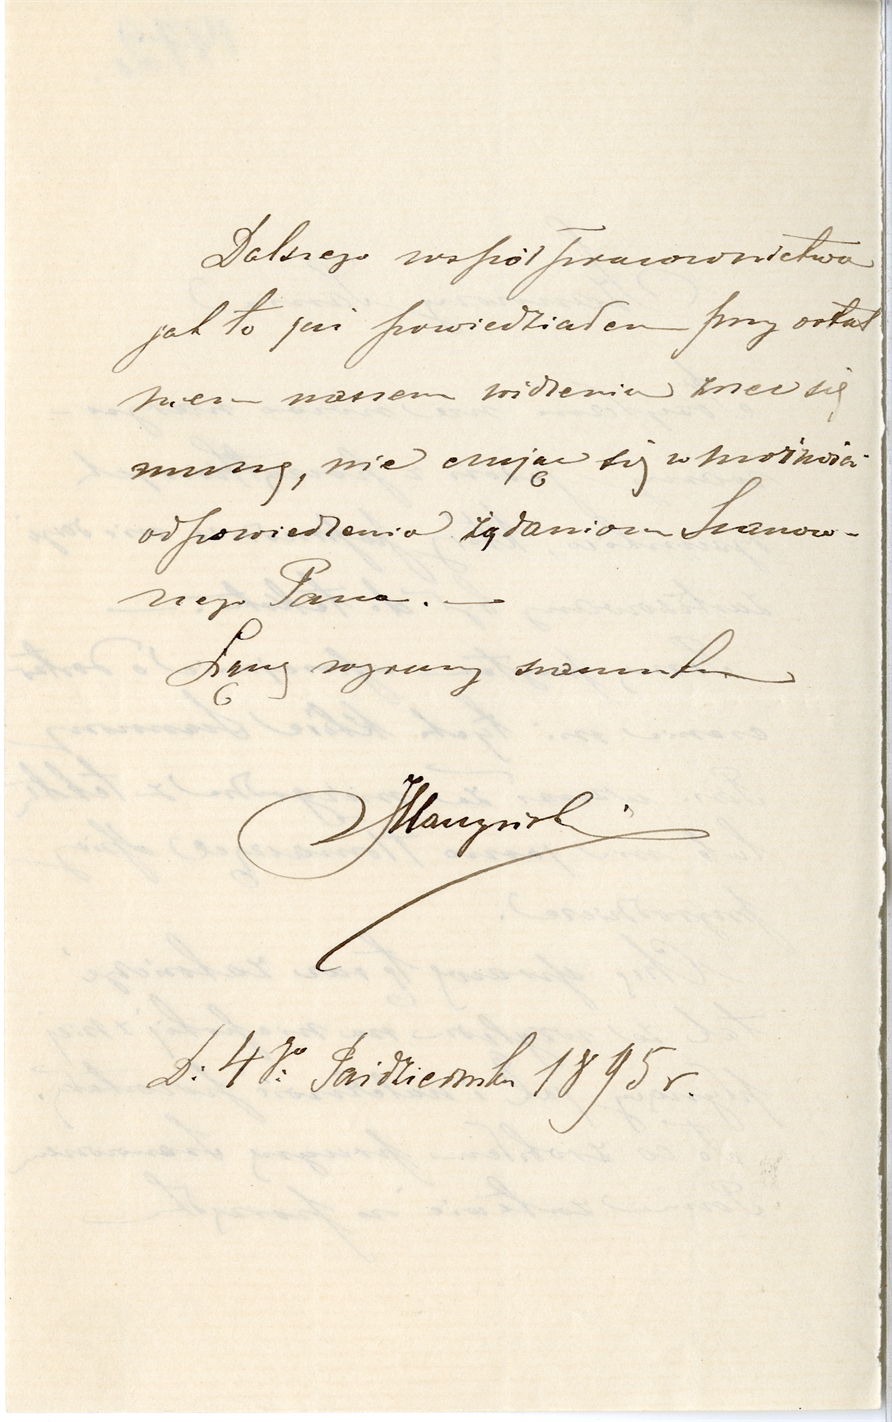 Dalszego współpracownictwa
jak to już powiedziałem przy ostat
niem naszem widzeniu zrzec się
muszę, nie czując się w możności
odpowiedzenia żądaniom Szanow-
nego Pana. —
Łączę wyrazy szacunku
D: 4go: Października 1895 r.